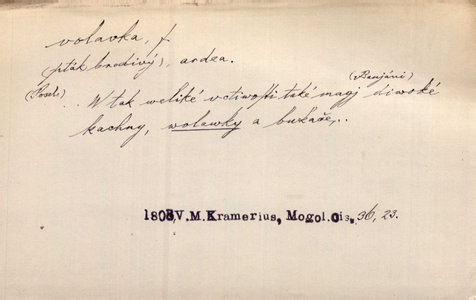 volavka, f
(pták brodivý), ardea.
(Banjáni)
(Souk) .. W tak weliké vctiwosti také magj diwoké
kachny, wolawky a bukače,..
1808 V.M.Kramerius, Mogol.cis, 36, 23.